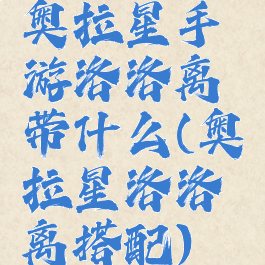 奥拉星手
游洛洛离
带什么(奥
拉星洛洛
离搭配)